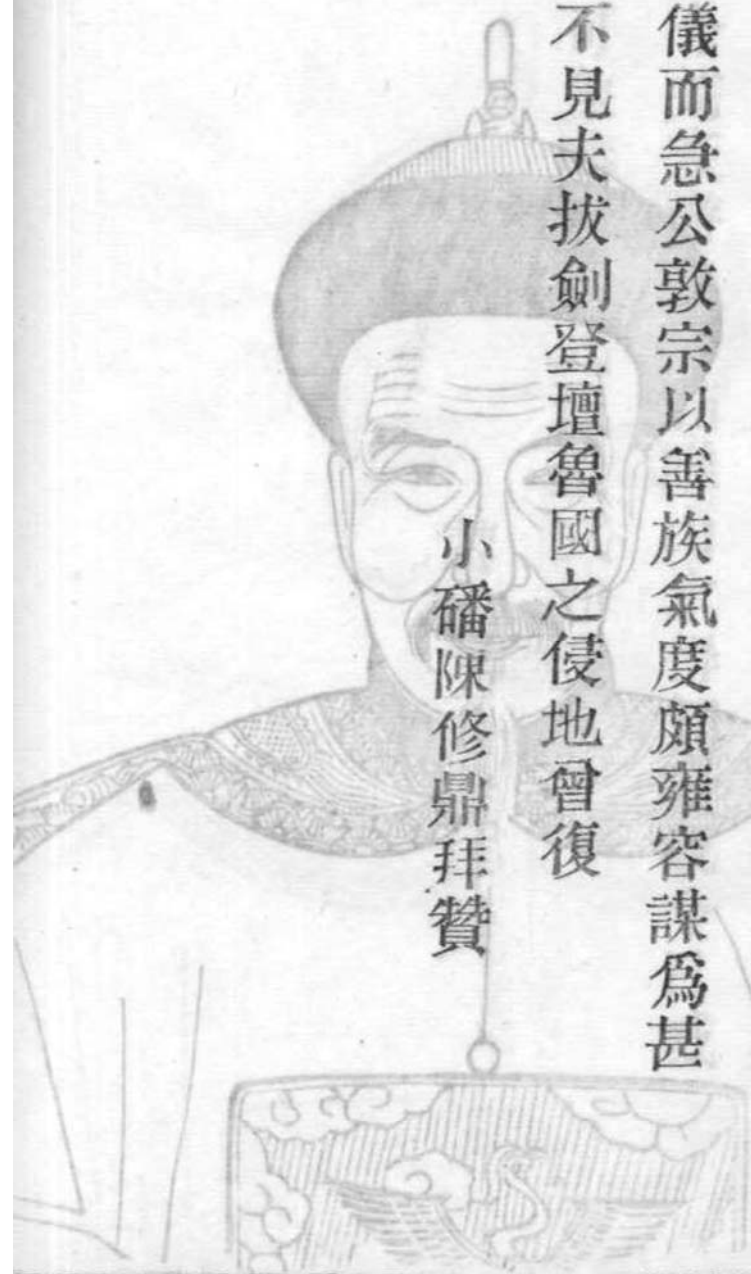 儀而急公敦宗以善族氣度頗雍容謀爲甚
不見夫拔劍登壇魯國之侵地曾復
小磻陳修鼎拜贊